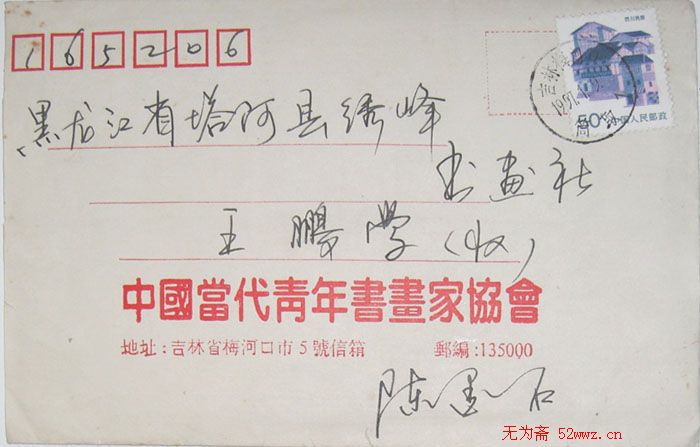 165206
四川民居
50分 中国人民邮政
吉林梅河口
黑龙江省塔河县绣峰
书画社
王鹏学(收)
中國當代青年書畫家協會
地址:吉林省梅河口市5號信箱 郵編:135000
陈墨石
无为斋 52wwz.cn